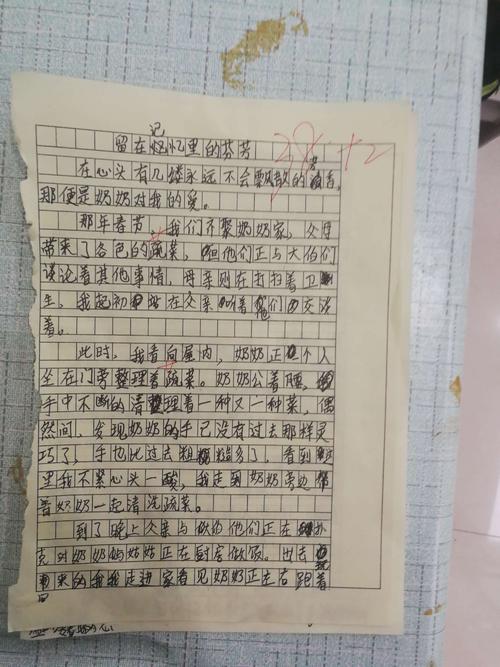 记
留在忆里的芬芳
在心头有几缕永远不会飘散的芳香,
那便是奶奶对我的爱。
那年春节,我们齐聚奶奶家,父母
带来了各色的蔬菜,但他们正与大伯们
谈论着其他事情,母亲则在打扫着卫
生,我起初站在父亲听着他们交谈
着。
此时,我看向屋内,奶奶正个人
坐在门旁整理着蔬菜。奶奶公着腰,
手中不断的清整理着一种又一种菜,偶
然间,发现奶奶的手已没有过去那样灵
巧了,手也比过去粗糙多了,看到
里我不紧心头一酸,我走到奶奶旁边
着奶奶一起清洗蔬菜。
到了晚上父亲与他们正在扑
克对奶奶妈姑姑正在厨房做饭。出去
来的我走进家看见奶奶正左右跑着